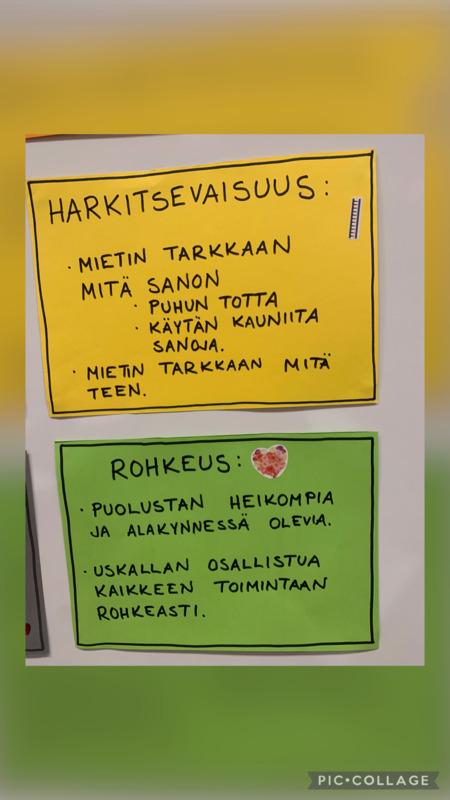 HARKITSEVAISUUS:
· MIETIN TARKKAAN
MITÄ SANON
· PUHUN TOTTA
· KÄYTÄN KAUNIITA
SANOJA.
· MIETIN TARKKAAN MITÄ
TEEN.
ROHKEUS:
· PUOLUSTAN HEIKOMPIA
JA ALAKYNNESSÄ OLEVIA.
· USKALLAN OSALLISTUA
KAIKKEEN TOIMINTAAN
ROHKEASTI.
PIC•COLLAGE